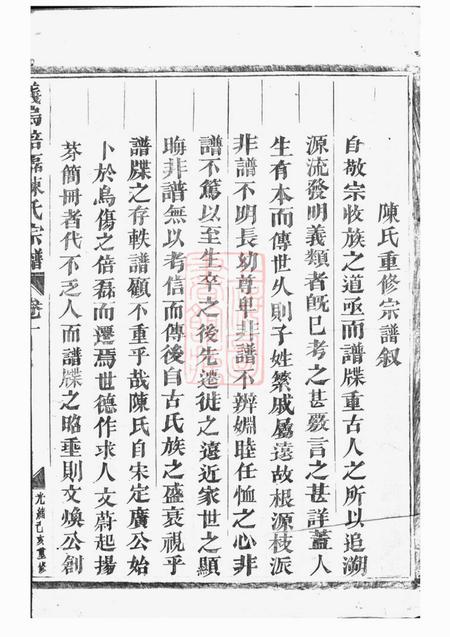 陳氏重修宗譜叙
自敬宗收族之道亟而譜牒重古人之所以追溯
源流發明義類者旣已考之甚覈言之甚詳蓋人
生有本而傳世久則子姓繁戚屬遠故根源枝派
非譜不明長幼尊卑非譜不辨婣睦任恤之心非
譜不篤以至生卒之後先遷徙之遠近家世之顯
晦非譜無以考信而傳後自古氏族之盛衰視乎
譜牒之存軼譜顧不重乎哉陳氏自宋定廣公始
卜於烏傷之倍磊而遷焉世德作求人文蔚起揚
芬簡冊者代不乏人而譜牒之昭垂則文煥公創
義烏倍磊陳氏宗譜 卷一
光緒己亥重修